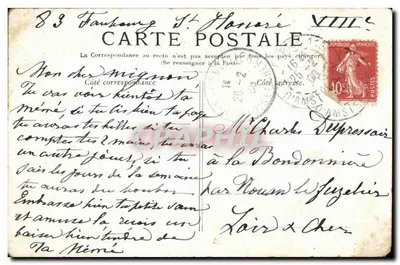 83 Faubourg St Honoré VIIIe
CARTE POSTALE
La Correspondance au recto n'est pas acceptée par tous les pays étrangers
(Se renseigner à la Poste)
Côté correspondance
Côté adresse.
10c
POSTES
PARIS
Mon cher mignon
Tu vas voir bientôt ta
mémé, si tu lis bien ta page
tu auras tes billes si tu
comptes tes 2 mains, tu auras
un autre joujou, si tu
sais les jours de la semaine
tu auras du bonbon
Embrasse bien ta petite sœur
et amuse la reçois un
baiser bien tendre de
Ta Mémé
Mr Charles Dépressoir
à la Bondonnière
par Nouan le Fuzelier
Loir & Cher